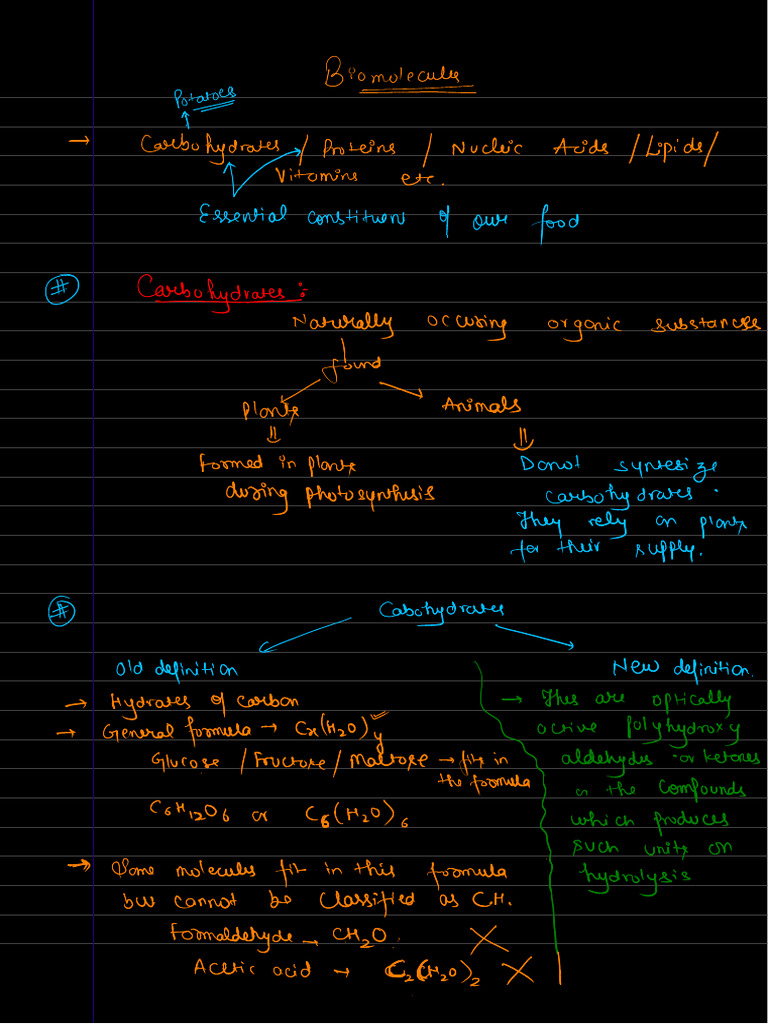 Biomolecules
Potatoes
→ Carbohydrates / Proteins / Nucleic Acids / Lipids /
Vitamins etc.
Essential constituent of our food
# Carbohydrates :
Naturally occuring organic substances
found
Plants Animals
Formed in plants
during photosynthesis
Donot syntesize
carbohydrates.
They rely on plants
for their supply.
# Cabohydrates
Old definition
→ Hydrates of carbon
→ General formula → Cx(H2O)y
Glucose / Fructose / Maltose → fits in
the formula
C6H12O6 or C6(H2O)6
→ Some molecules fit in this formula
but cannot be classified as CH.
Formaldehyde → CH2O. X
Acetic acid → C2(H2O)2 X
New definition.
→ Thes are optically
active polyhydroxy
aldehydes or ketones
or the compounds
which produces
such units on
hydrolysis